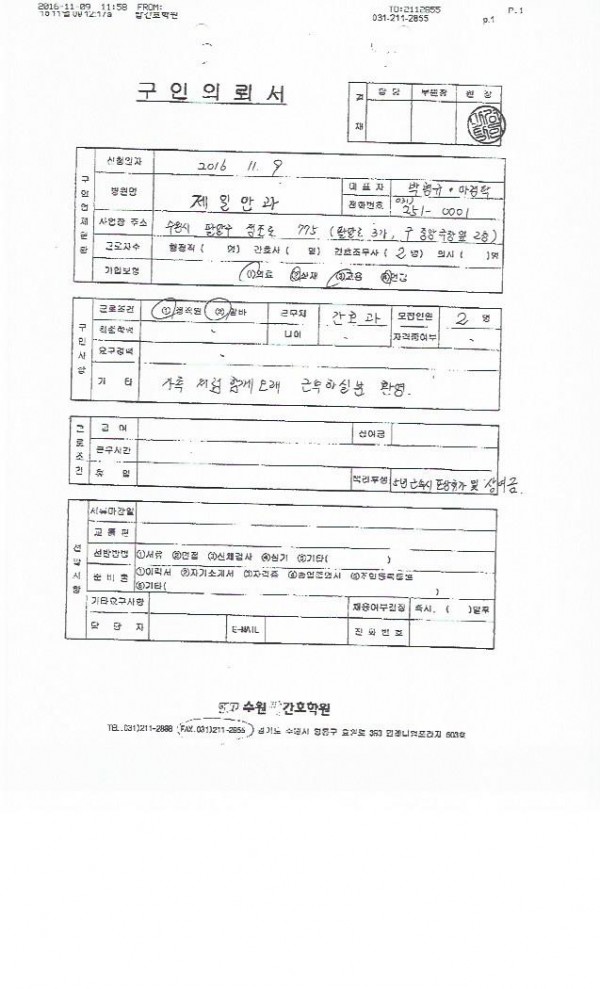 2016-11-09 11:58 FROM: TO:2112855 P.1
031-211-2855 p.1
구 인 의 뢰 서
결 재 담 당 부원장 원 장
구인업체현황
신청일자 2016 11. 9
병원명 제일안과 대 표 자 박형규·마경학
전화번호 031) 251-0001
사업장 주소 수원시 팔달구 정조로 775 (팔달로 3가, 구 중앙극장옆 2층)
근로자수 행정직 ( 명) 간호사 ( 명) 간호조무사 ( 2 명) 의사 ( )명
가입보험 ①의료 ②산재 ③고용 ④연금
구인사항
근로조건 ①정직원 ②알바 근무처 간호과 모집인원 2 명
최종학력 나이 자격증여부
요구경력
기 타 가족처럼 함께 오래 근무하실분 환영.
근로조건
급 여 상여금
근무시간
휴 일 복리후생 5년 근속시 포상휴가 및 상여금.
선발사항
서류마감일
교통편
선발방법 ①서류 ②면접 ③신체검사 ④실기 ⑤기타( )
준 비 물 ①이력서 ②자기소개서 ③자격증 ④졸업증명서 ⑤주민등록등본
⑥기타( )
기타요구사항 채용여부결정 즉시, ( )일후
담 당 자 E-MAIL 전 화 번 호
수원 간호학원
TEL.031)211-2888 FAX.031)211-2855 경기도 수원시 영통구 603호